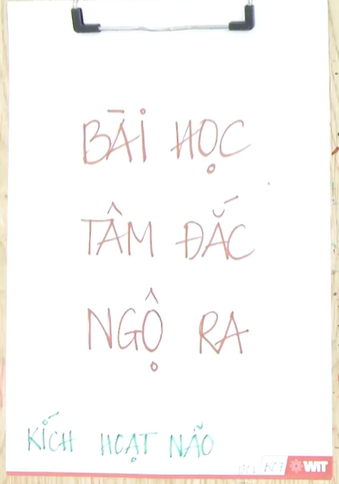 BÀI HỌC
TÂM ĐẮC
NGỘ RA
KÍCH HOẠT NÃO
WIT